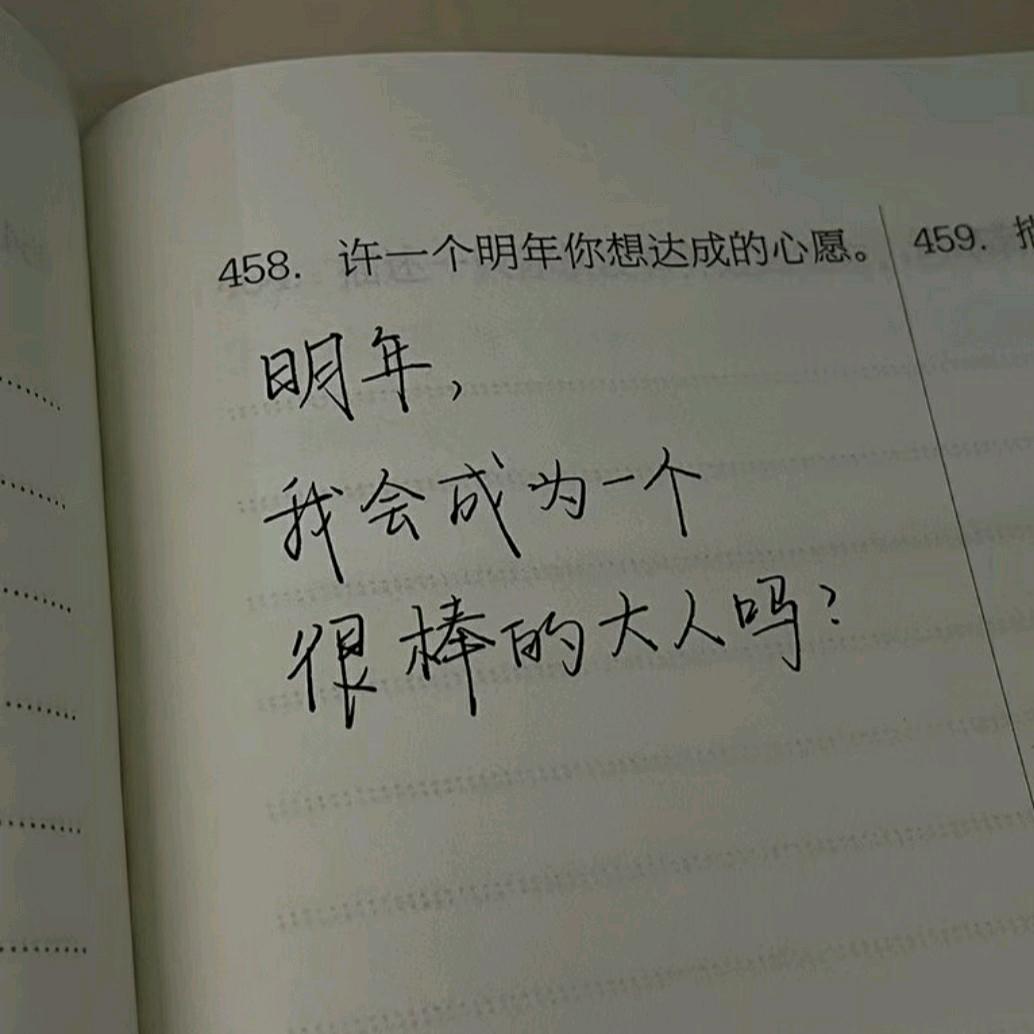 458. 许一个明年你想达成的心愿。
明年,
我会成为一个
很棒的大人吗?
459.